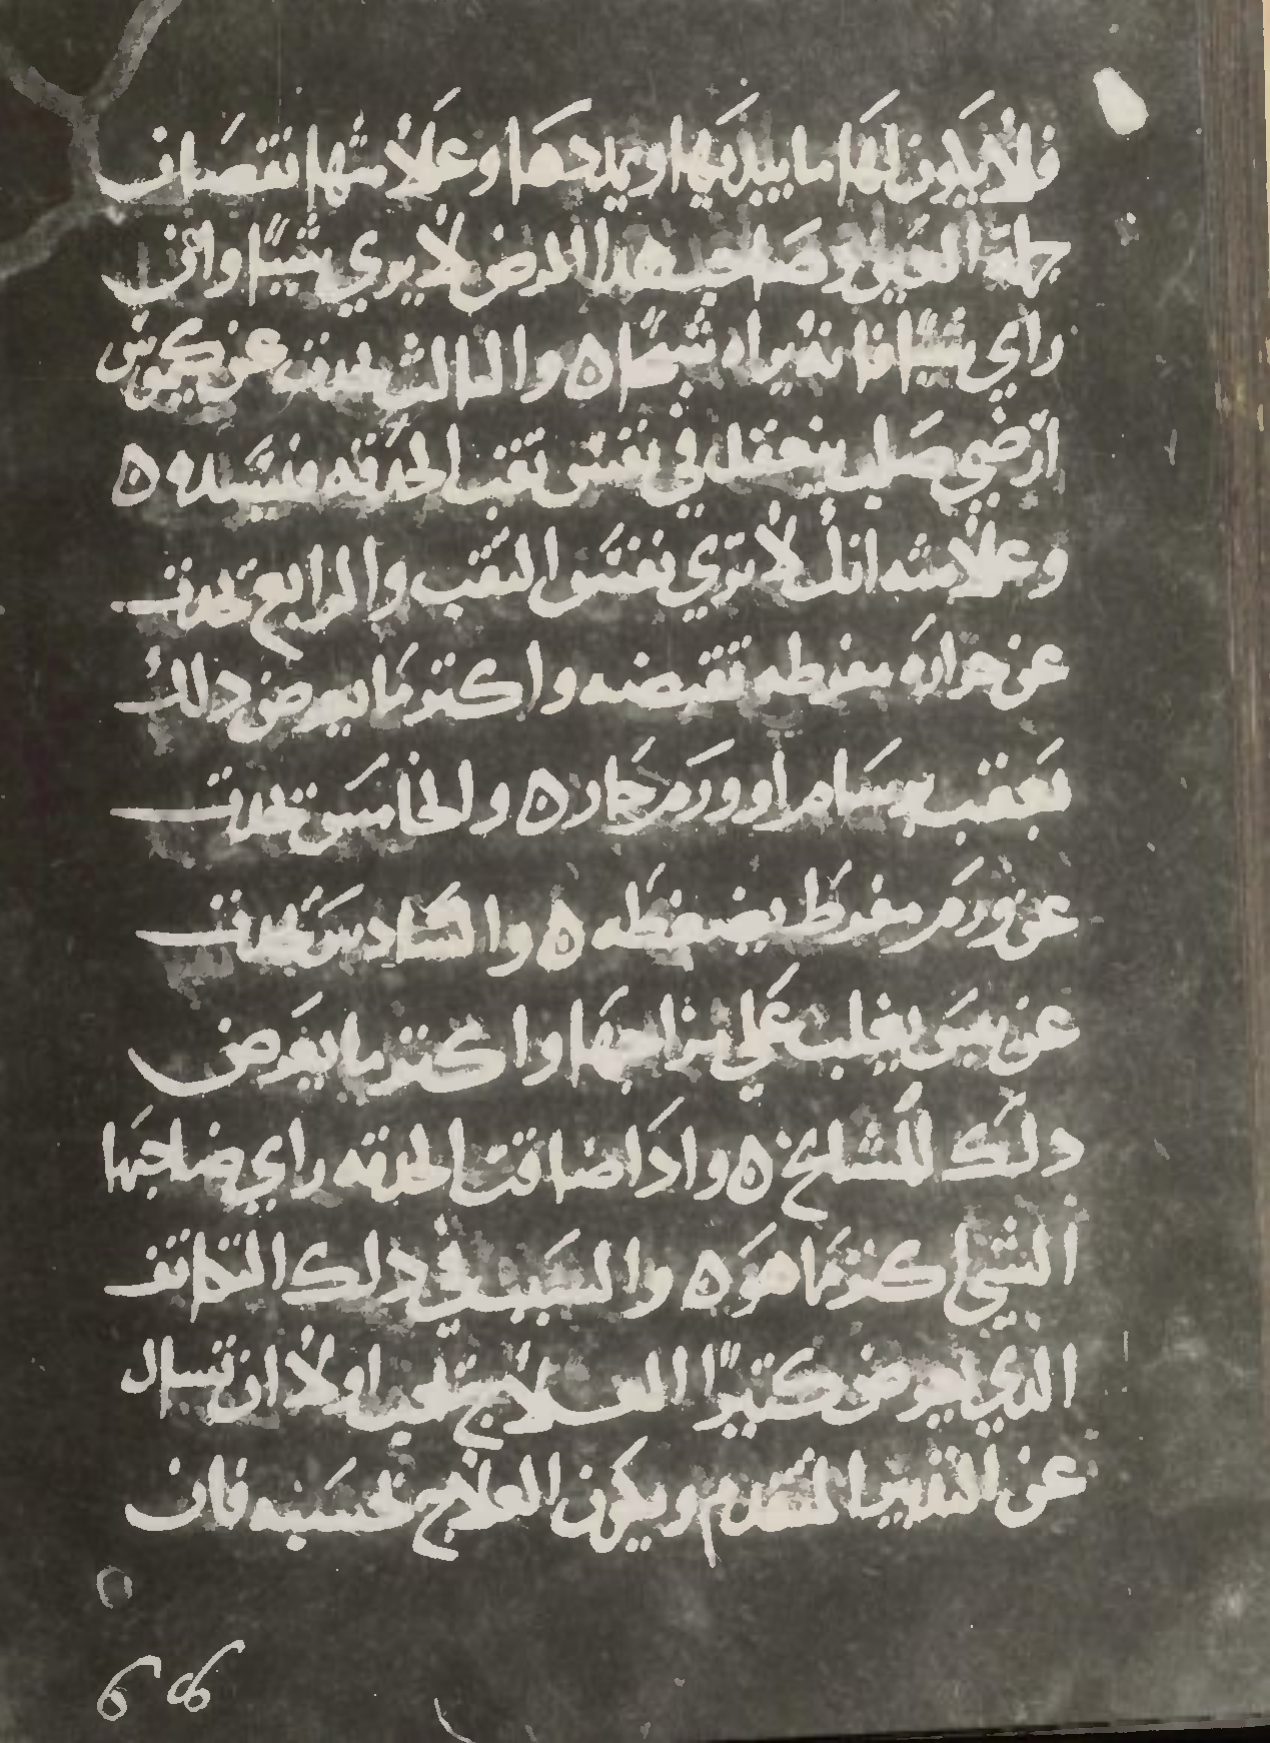 فلا يكون لها ما يبديها ويمددها وعلامتها نقصان
جملة العين وصاحب هدا المرض لا يري شيئًا وان
راي شيئًا فانه يراه شبحًا ٥ والثالث يحدث عن كيموس
ارضي صلب ينعقد في نفس ثقب الحدقه فيسده ٥
وعلامته انك لا تري نفس الثقب والرابع يحدث
عن حراره مفرطه تقبضه واكثر ما يعرض دلك
بعقب برسام او ورم حار ٥ والخامس يحدث
عن ورم مفرط يضغطه ٥ والسادس يحدث
عن يبس يغلب علي مزاجها واكثر ما يعرض
دلك للمشايخ ٥ وادا ضاقت الحدقه راي صاحبها
الشي اكثر مما هو ٥ والسبب في دلك التكاثف
الذي يعرض كثيرًا العلاج يجب اولا ان تسال
عن التدبير المتقدم ويكون العلاج بحسبه فان